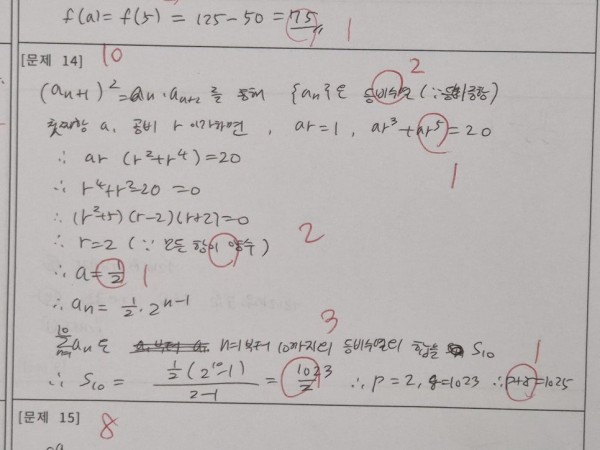 f(a) = f(5) = 125 - 50 = 75 1
[문제 14] 10
(aₙ₊₁)² = aₙ · aₙ₊₂ 를 통해 {aₙ}은 등비수열 (∵ 등비중항) 2
첫째항 a, 공비 r 이라하면, ar = 1, ar³ + ar⁵ = 20
∴ ar (r² + r⁴) = 20 1
∴ r⁴ + r² - 20 = 0
∴ (r² + 5) (r - 2) (r + 2) = 0
∴ r = 2 (∵ 모든 항이 양수) 2
∴ a = 1/2 1
∴ aₙ = 1/2 · 2ⁿ⁻¹
3
10 Σ n=1 aₙ은 n=1부터 10까지의 등비수열의 합 S₁₀ 1
∴ S₁₀ = 1/2 (2¹⁰ - 1) / 2 - 1 = 1023/2 ∴ p = 2, q = 1023 ∴ p + q = 1025
[문제 15] 8